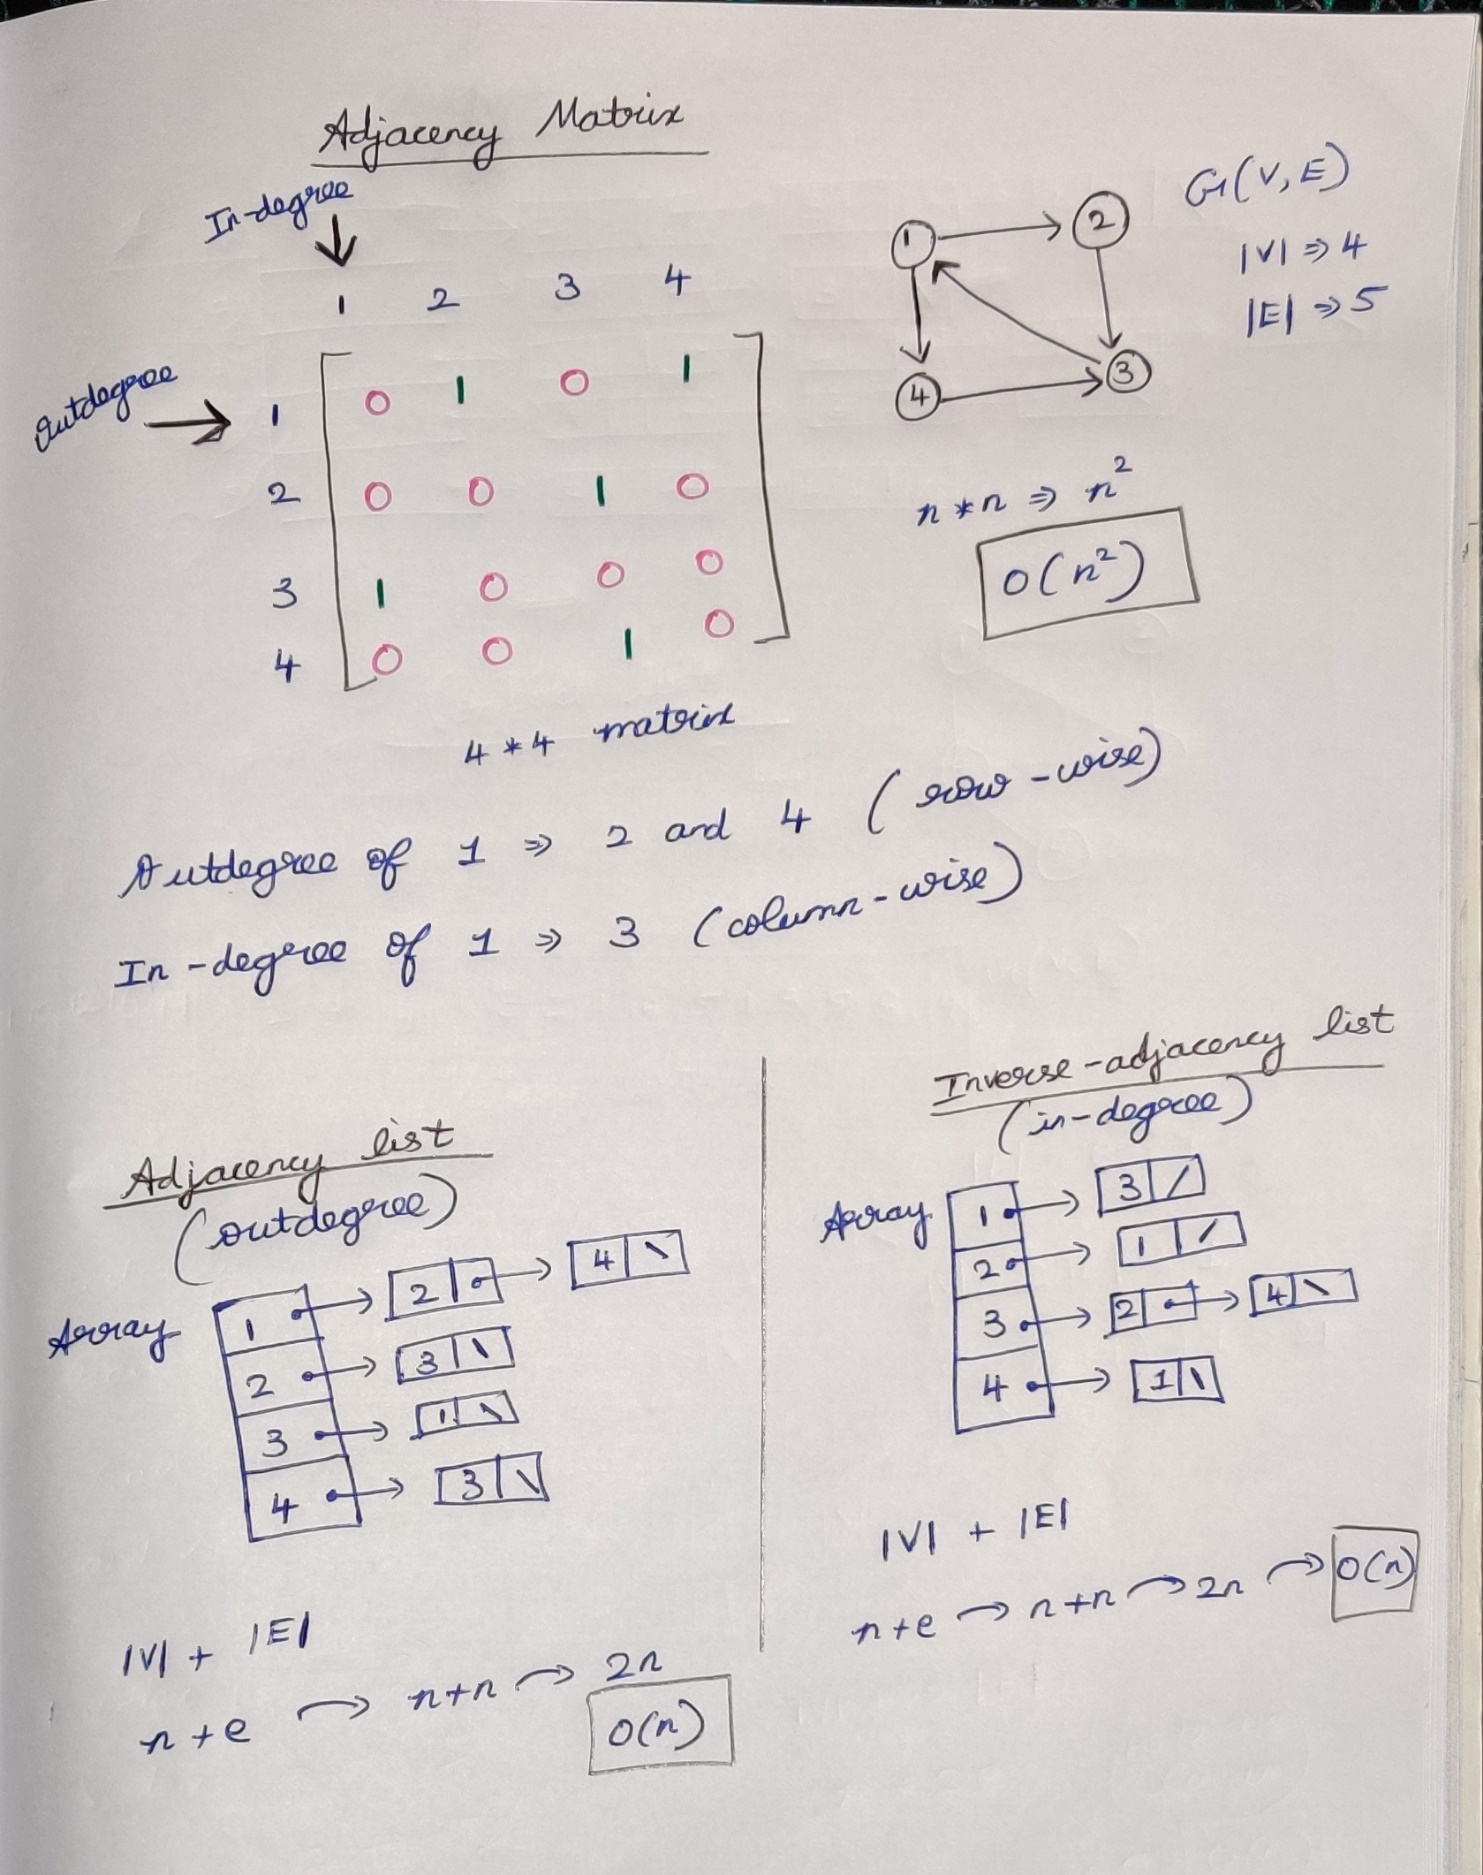 Adjacency Matrix
In-degree
↓
1 2 3 4
Outdegree → 1 0 1 0 1
2 0 0 1 0
3 1 0 0 0
4 0 0 1 0
4 * 4 matrix
G(V,E)
|V| ⇒ 4
|E| ⇒ 5
1 → 2
4 → 3
n * n ⇒ n²
O(n²)
Outdegree of 1 ⇒ 2 and 4 (row-wise)
In-degree of 1 ⇒ 3 (column-wise)
Adjacency list
(outdegree)
Array
1 → 2 → 4 \
2 → 3 \
3 → 1 \
4 → 3 \
|V| + |E|
n + e → n+n → 2n
O(n)
Inverse-adjacency list
(in-degree)
Array
1 → 3 /
2 → 1 /
3 → 2 → 4 \
4 → 1 \
|V| + |E|
n+e → n+n → 2n → O(n)